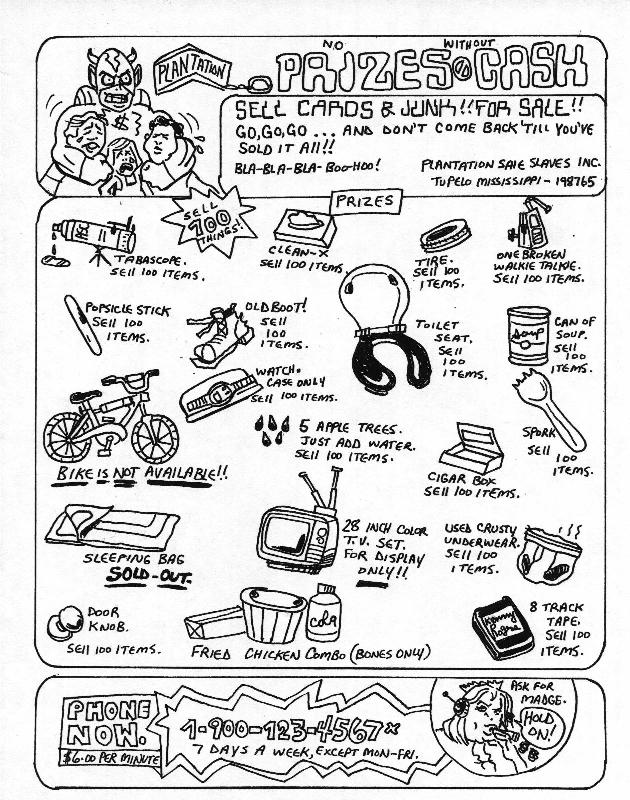 PLANTATION
NO WITHOUT
PRIZES CASH
SELL CARDS & JUNK!! FOR SALE!!
GO, GO, GO ... AND DON'T COME BACK 'TILL YOU'VE
SOLD IT All!!
BLA-BLA-BLA-BOO-HOO!
PLANTATION SAlE SLAVES INC.
TUPELO MISSISSIPPI - 198765
$
SELL
100
THINGS!
PRIZES
TABASCOPE.
SEll 100 ITEMS.
CLEAN-X
SEll 100 ITEMS.
TIRE.
SEll 100
ITEMS.
ONE BROKEN
WALKIE TALKIE.
SEll 100 ITEMS.
POPSICLE STICK
SEll 100
ITEMS.
OLD BOOT!
SEll
100
ITEMS.
TOILET
SEAT.
SEll
100
ITEMS.
Soup
CAN OF
SOUP.
SEll
100
ITEMS.
WATCH.
CASE ONLY
SEll 100 ITEMS.
BIKE IS NOT AVAILABLE!!
5 APPLE TREES.
JUST ADD WATER.
SEll 100 ITEMS.
CIGAR BOX
SEll 100 ITEMS.
SPORK
SEll
100
ITEMS.
SLEEPING BAG
SOLD-OUT.
28 INCH COLOR
T.V. SET.
FOR DISPLAY
ONLY!!
USED CRUSTY
UNDERWEAR.
SEll 100
ITEMS.
DOOR
KNOB.
SEll 100 ITEMS.
COLA
FRIED CHICKEN COMBO (BONES ONLY)
Kenny
Rogers
8 TRACK
TAPE.
SEll 100
ITEMS.
PHONE
NOW.
$6.00 PER MINUTE
1-900-123-4567x
7 DAYS A WEEK, EXCEPT MON-FRI.
ASK FOR
MADGE.
HOLD
ON!